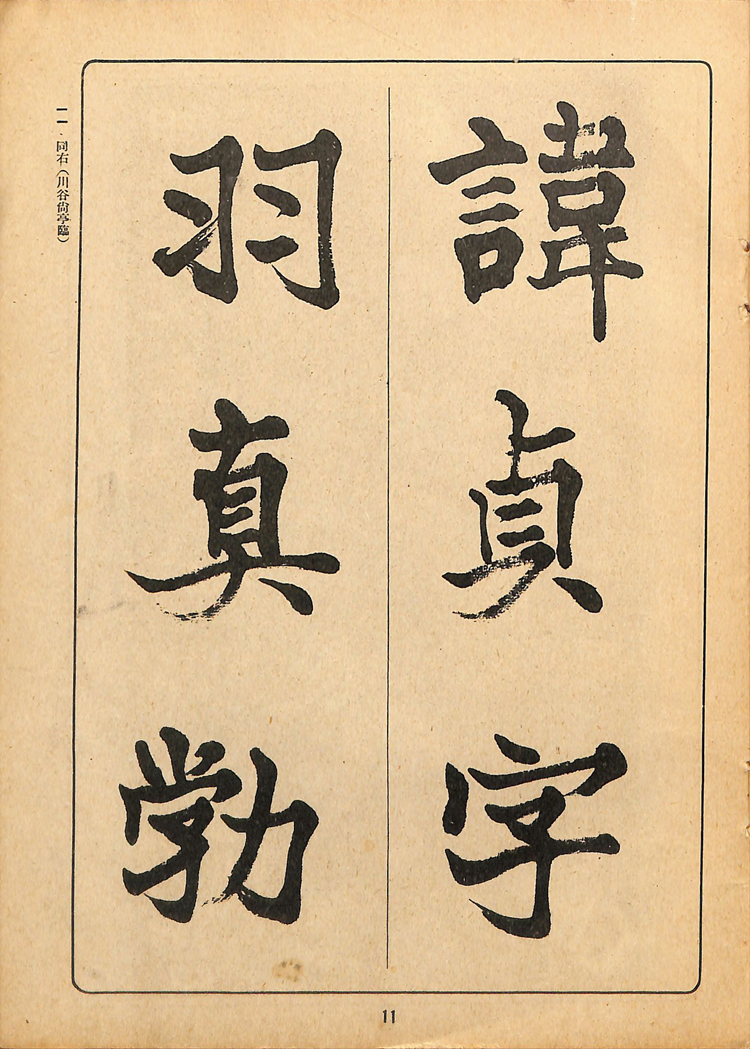 諱貞字
羽真勃
一一、同右（川谷尙亭臨）
11